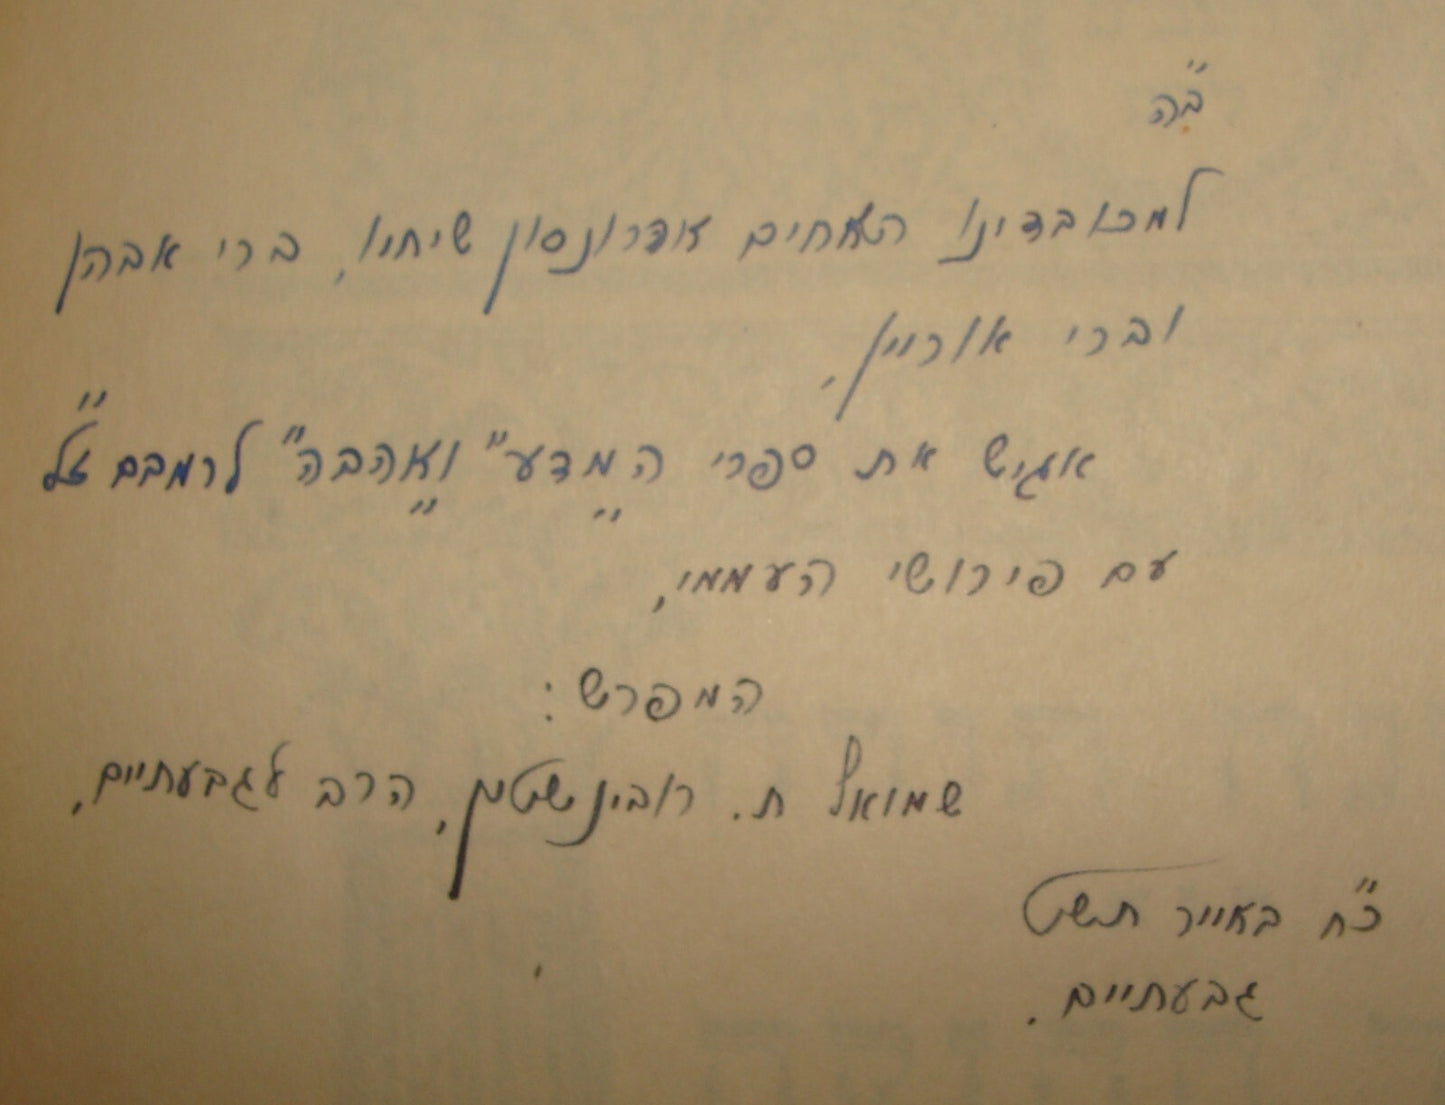 ב״ה
למכובדינו האחים אהרונסון שיחיו, ברי אבהן
וברי אוריין,
אגיש את ספרי המדע״ ואהבה״ לרמבם ז״ל
עם פירושי העממי,
המפרש:
שמואל ת. רובינשטין, הרב לגבעתיים,
כ״ח באייר תשט
גבעתיים.